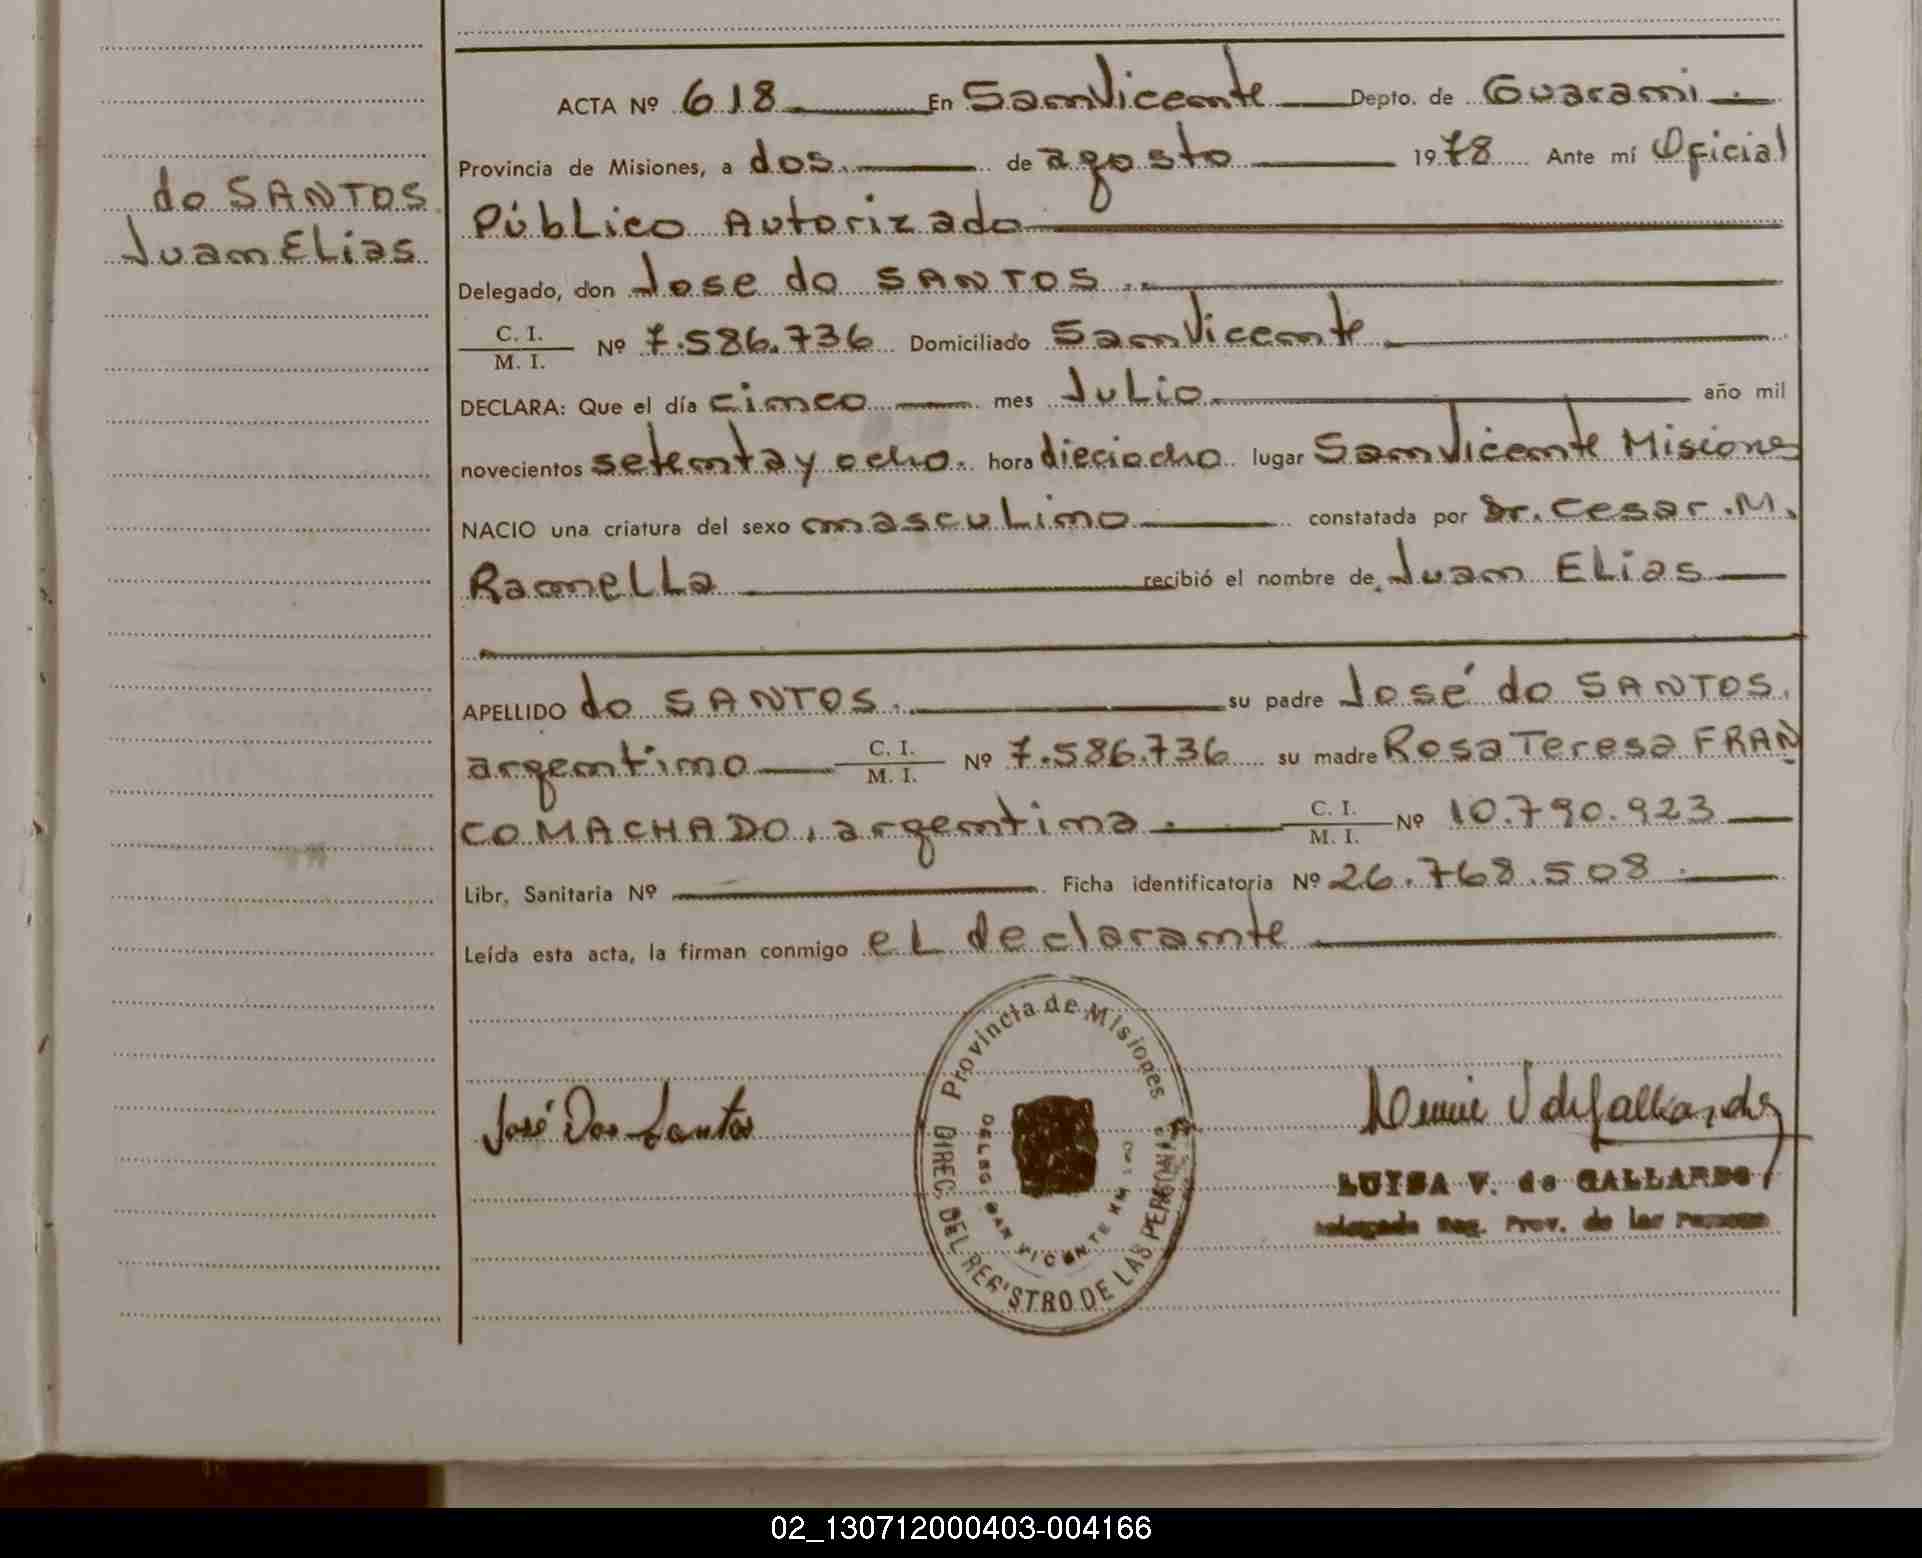 ACTA Nº 618 En San Vicente Depto. de Guarani
Provincia de Misiones, a dos de agosto 1978 Ante mí Oficial
do SANTOS
Público Autorizado
Juan Elias
Delegado, don Jose do SANTOS
C. I. / M. I. Nº 7.586.736 Domiciliado San Vicente
DECLARA: Que el día cinco mes Julio año mil
novecientos setenta y ocho. hora dieciocho lugar San Vicente Misiones
NACIO una criatura del sexo masculino constatada por Dr. Cesar. M.
Ramella recibió el nombre de Juan Elias
APELLIDO do SANTOS. su padre José do SANTOS.
argentino C. I. / M. I. Nº 7.586.736 su madre Rosa Teresa FRAN
CO MACHADO, argentina. C. I. / M. I. Nº 10.790.923
Libr. Sanitaria Nº Ficha identificatoria Nº 26.768.508.
Leída esta acta, la firman conmigo el declarante
Provincia de Misiones
DIREC. DEL REGISTRO DE LAS PERSONAS
DELEG. SAN VICENTE KM
José Dos Santos
LUISA V. de GALLARDO
Delegada Reg. Prov. de las Personas
02_130712000403-004166